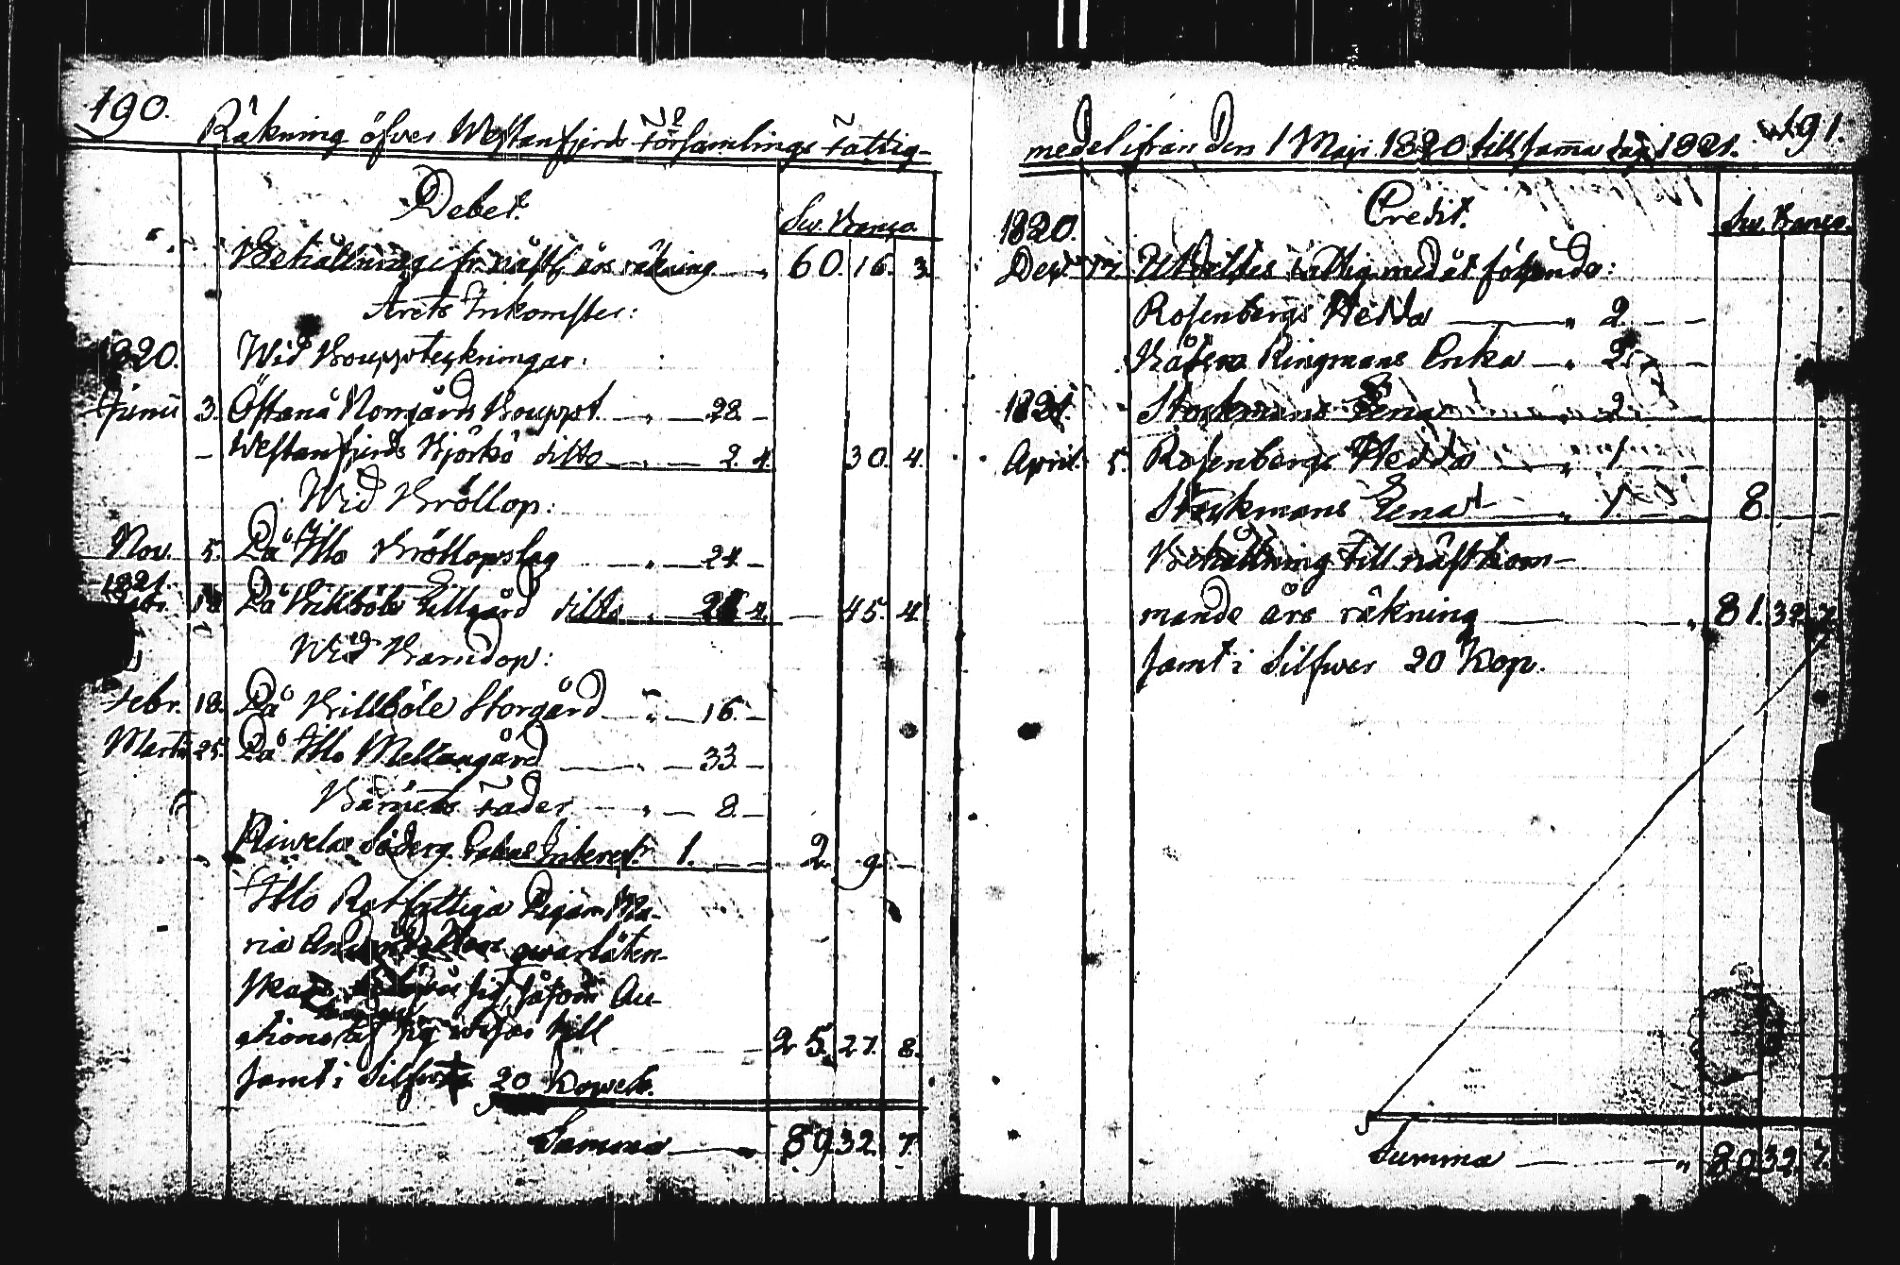 190.
Räkning öfver Westanfjerds Församlings Fattig-
Debet.
Sw. Banco.
Behållning ifr. näst. års räkning 60. 16. 3.
Årets Inkomster:
1820. Wid Bouppteckningar:
Junii 3. Östanå Norrgårds Bouppt. " — 28 —
— Westanfjerds Björkö ditto " — 2. 4. 30. 4.
Wid Bröllop:
Nov. 5. På Illo Bröllopslag " — 24 —
1821.
Febr. På Billböle Lillgård ditto " — 21 4. — 45. 4.
Wid Barndop:
Febr. 18. På Billböle Storgård " — 16 —
Martii 25. På Illo Mellangård — 33 —
Barnets Fader " — 8 —
Söderg. Interest. 1. — — 2. 9. —
Illo Rotfattiga Pigan Ma-
ria qvarlåten-
såsom Au-
ctions till 25. 27. 8.
Jamt i Silfwer 20 Kopek.
Summa — " 89 32. 7.
191.
medel ifrån den 1 Maji 1820 till samma dag 1821.
Credit.
Sw. Banco.
1820.
Dec. 17. Utdeltes fattigmed. åt följande:
Rosenbergs Hedda — " 2. — —
Ringmans Enka — " 2. — —
1821. Stockmans Lena — " 2. — —
April 5. Rosenbergs Hedda — " 1. — —
Stockmans Lena — " 1. — — 8. — —
Behållning till nästkom-
mande års räkning — " 81. 32. 7.
Jamt i Silfwer 20 Kop.
Summa — " 89 32. 7.